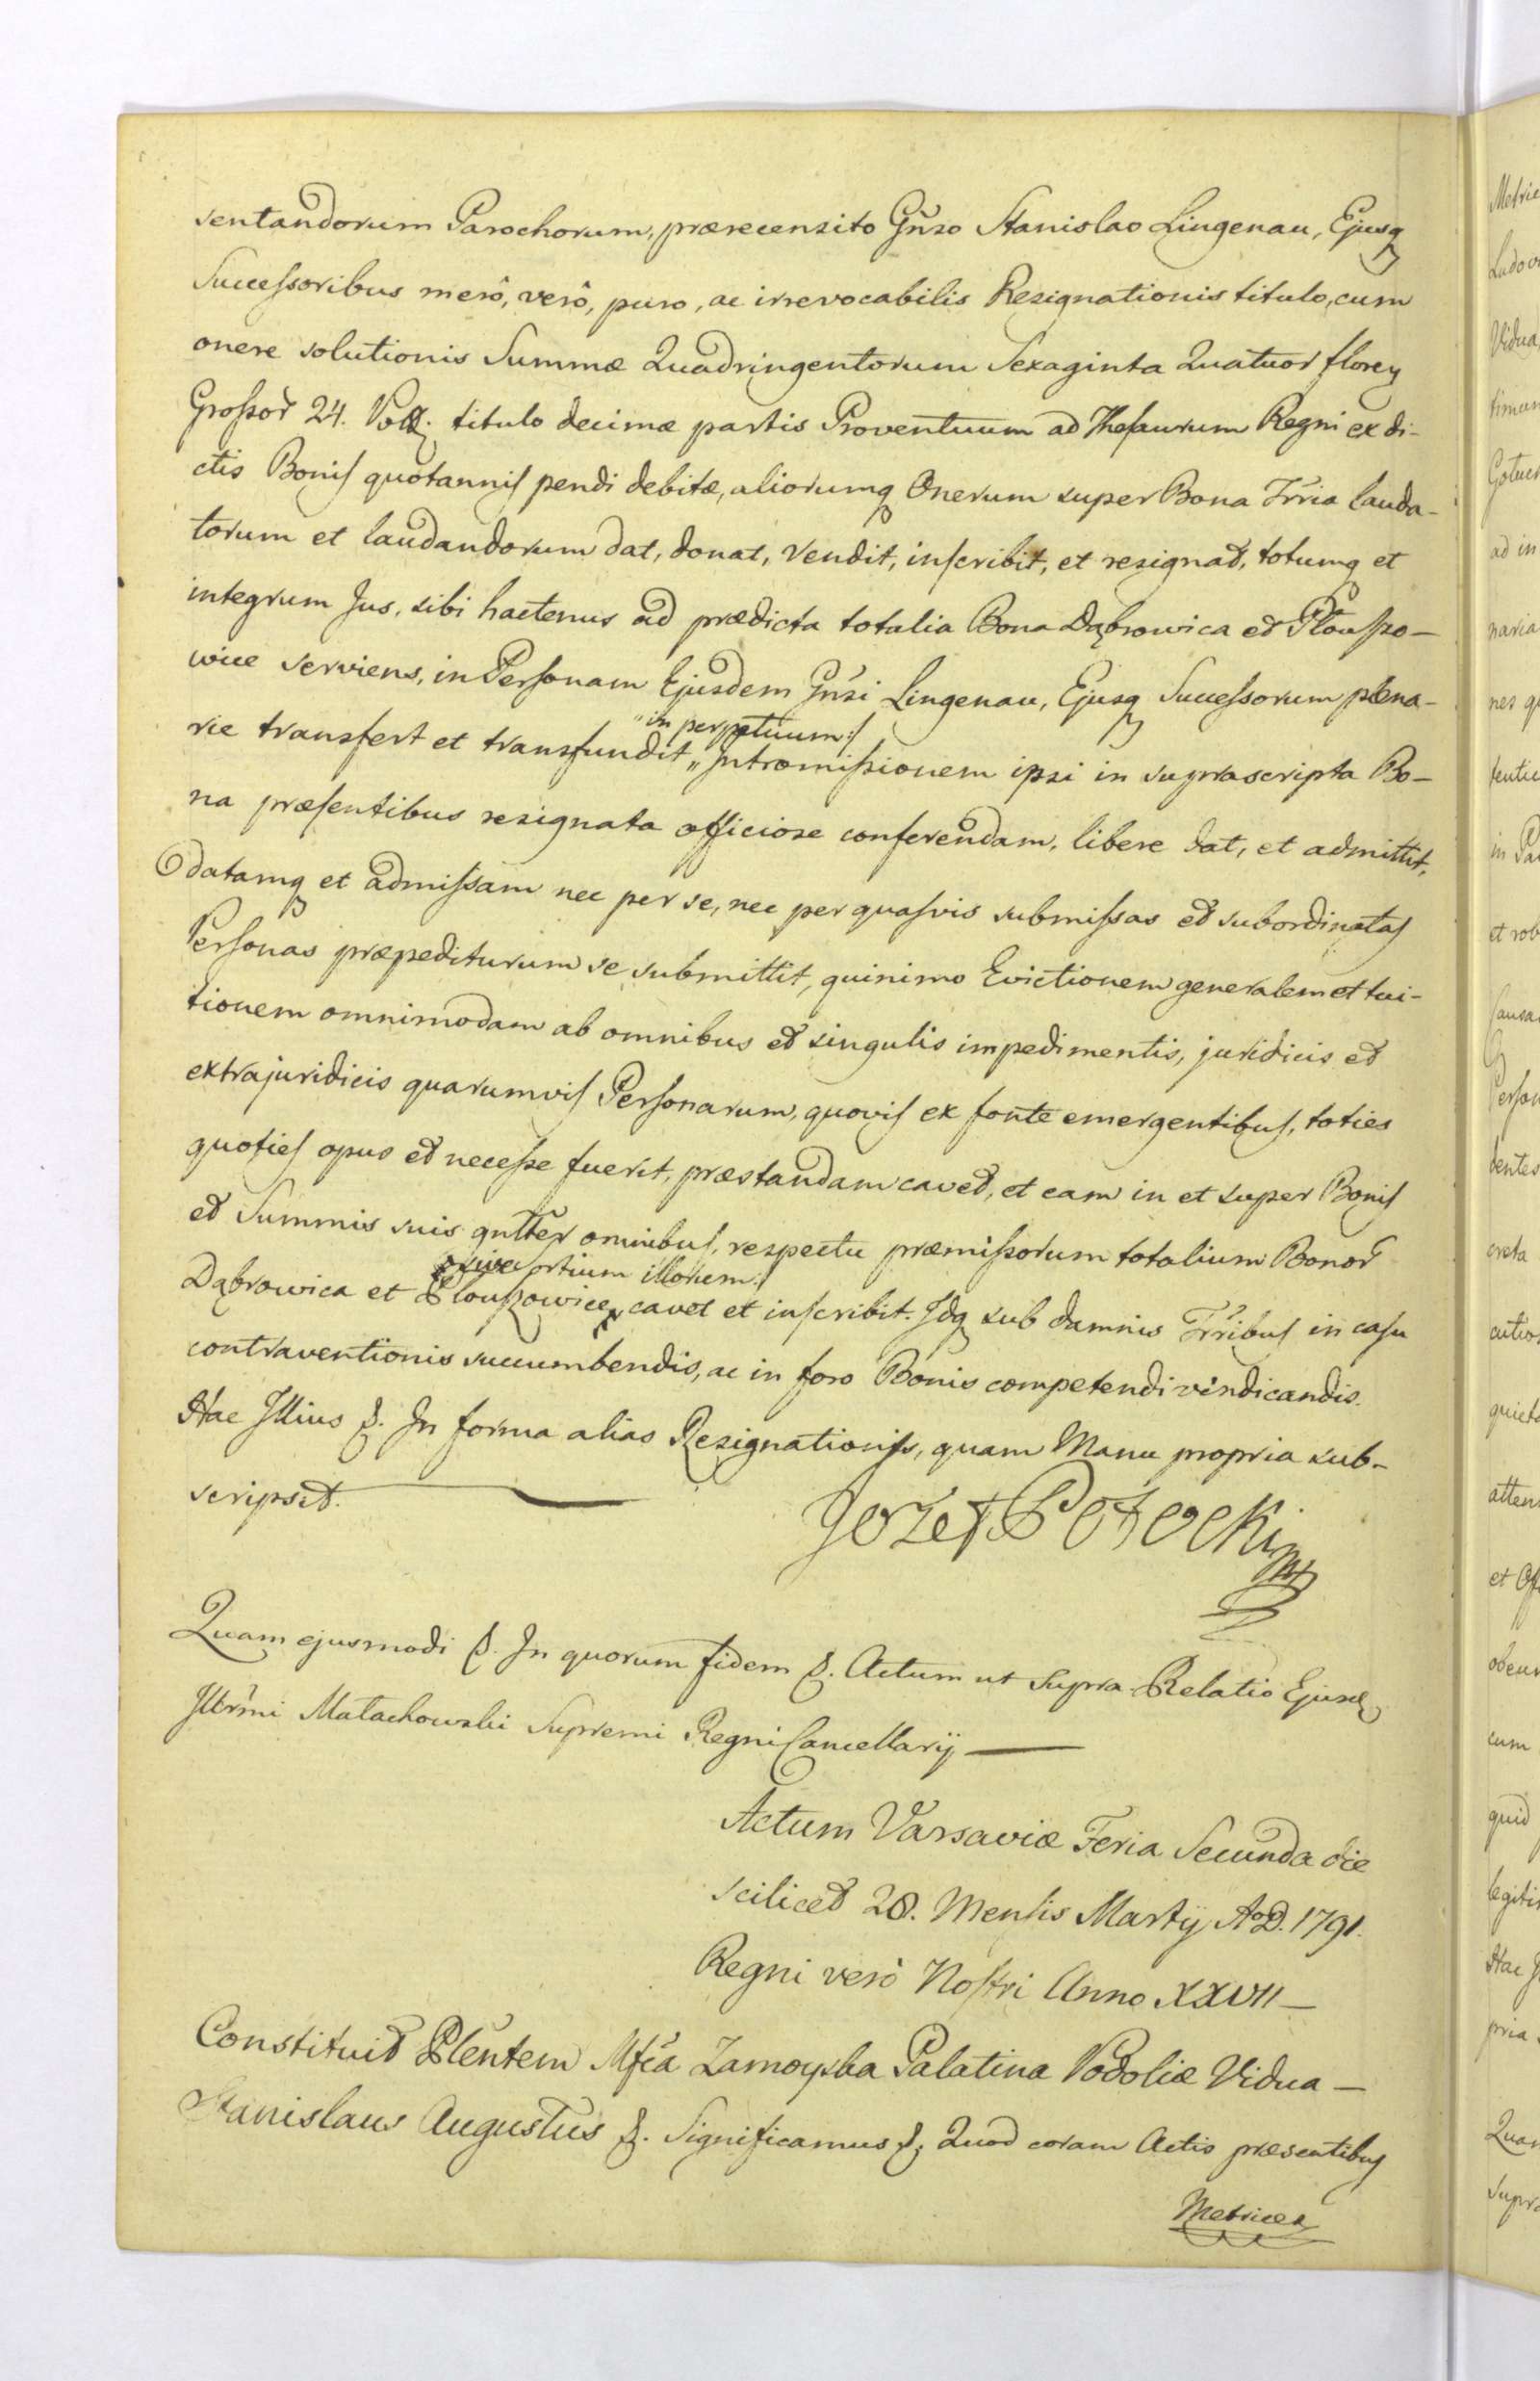 sentandorum Parochorum, prærecensito Gñso Stanislao Lingenau, Ejusq
Successoribus merô, verô, puro, ac irrevocabilis Resignationis titulo, cum
onere solutionis Summæ Quadringentorum Sexaginta Quatuor floren
Grossor 24. Poll. titulo decimæ partis Proventuum ad Thesaurum Regni ex di-
ctis Bonis quotannis pendi debitæ, aliorumq Onerum super Bona Trria lauda-
torum et laudandorum dat, donat, vendit, inscribit, et resignat, totumq et
integrum Jus, sibi hactenus ad prædicta totalia Bona Dąbrowica et Płouszo-
wice serviens, in Personam Ejusdem Gnsi Lingenau, Ejusq Successorum plena-
"in perpetuum:/
rie transfert et transfundit " Intromissionem ipsi in suprascripta Bo-
na præsentibus resignata officiose conferendam, libere dat, et admittit,
datamq et admissam nec per se, nec per quasvis submissas et subordinatas
Personas præpediturum se submittit, quinimo Evictionem generalem et tui-
tionem omnimodam ab omnibus et singulis impedimentis, juridicis et
extrajuridicis quarumvis Personarum, quovis ex fonte emergentibus, toties
quoties opus et necesse fuerit, præstandam cavet, et eam in et super Bonis
et Summis suis gntter omnibus, respectu præmissorum totalium Bonor
sive ortium illorum:/
Dąbrowica et Płouszowice, cavet et inscribit. Idq sub damnis Trribus in casu
contraventionis succumbendis, ac in foro Bonis competendi vindicandis.
Hac Illius &. In forma alias Resignationis, quam Manu propria sub-
scripsit.
Jozef Potocki mp
Quam ejusmodi &. In quorum fidem &. Actum ut Supra Relatio Ejusd
Illrmi Małachowski Supremi Regni Cancellarij
Actum Varsaviæ Feria Secunda die
scilicet 28. Mensis Martij AoD. 1791.
Regni verò Nostri Anno XXVII
Constituit Plentem Mfca Zamoyska Palatina Podoliæ Vidua
Stanislaus Augustus &. Significamus &. Quod coram Actis præsentibus
Metrices